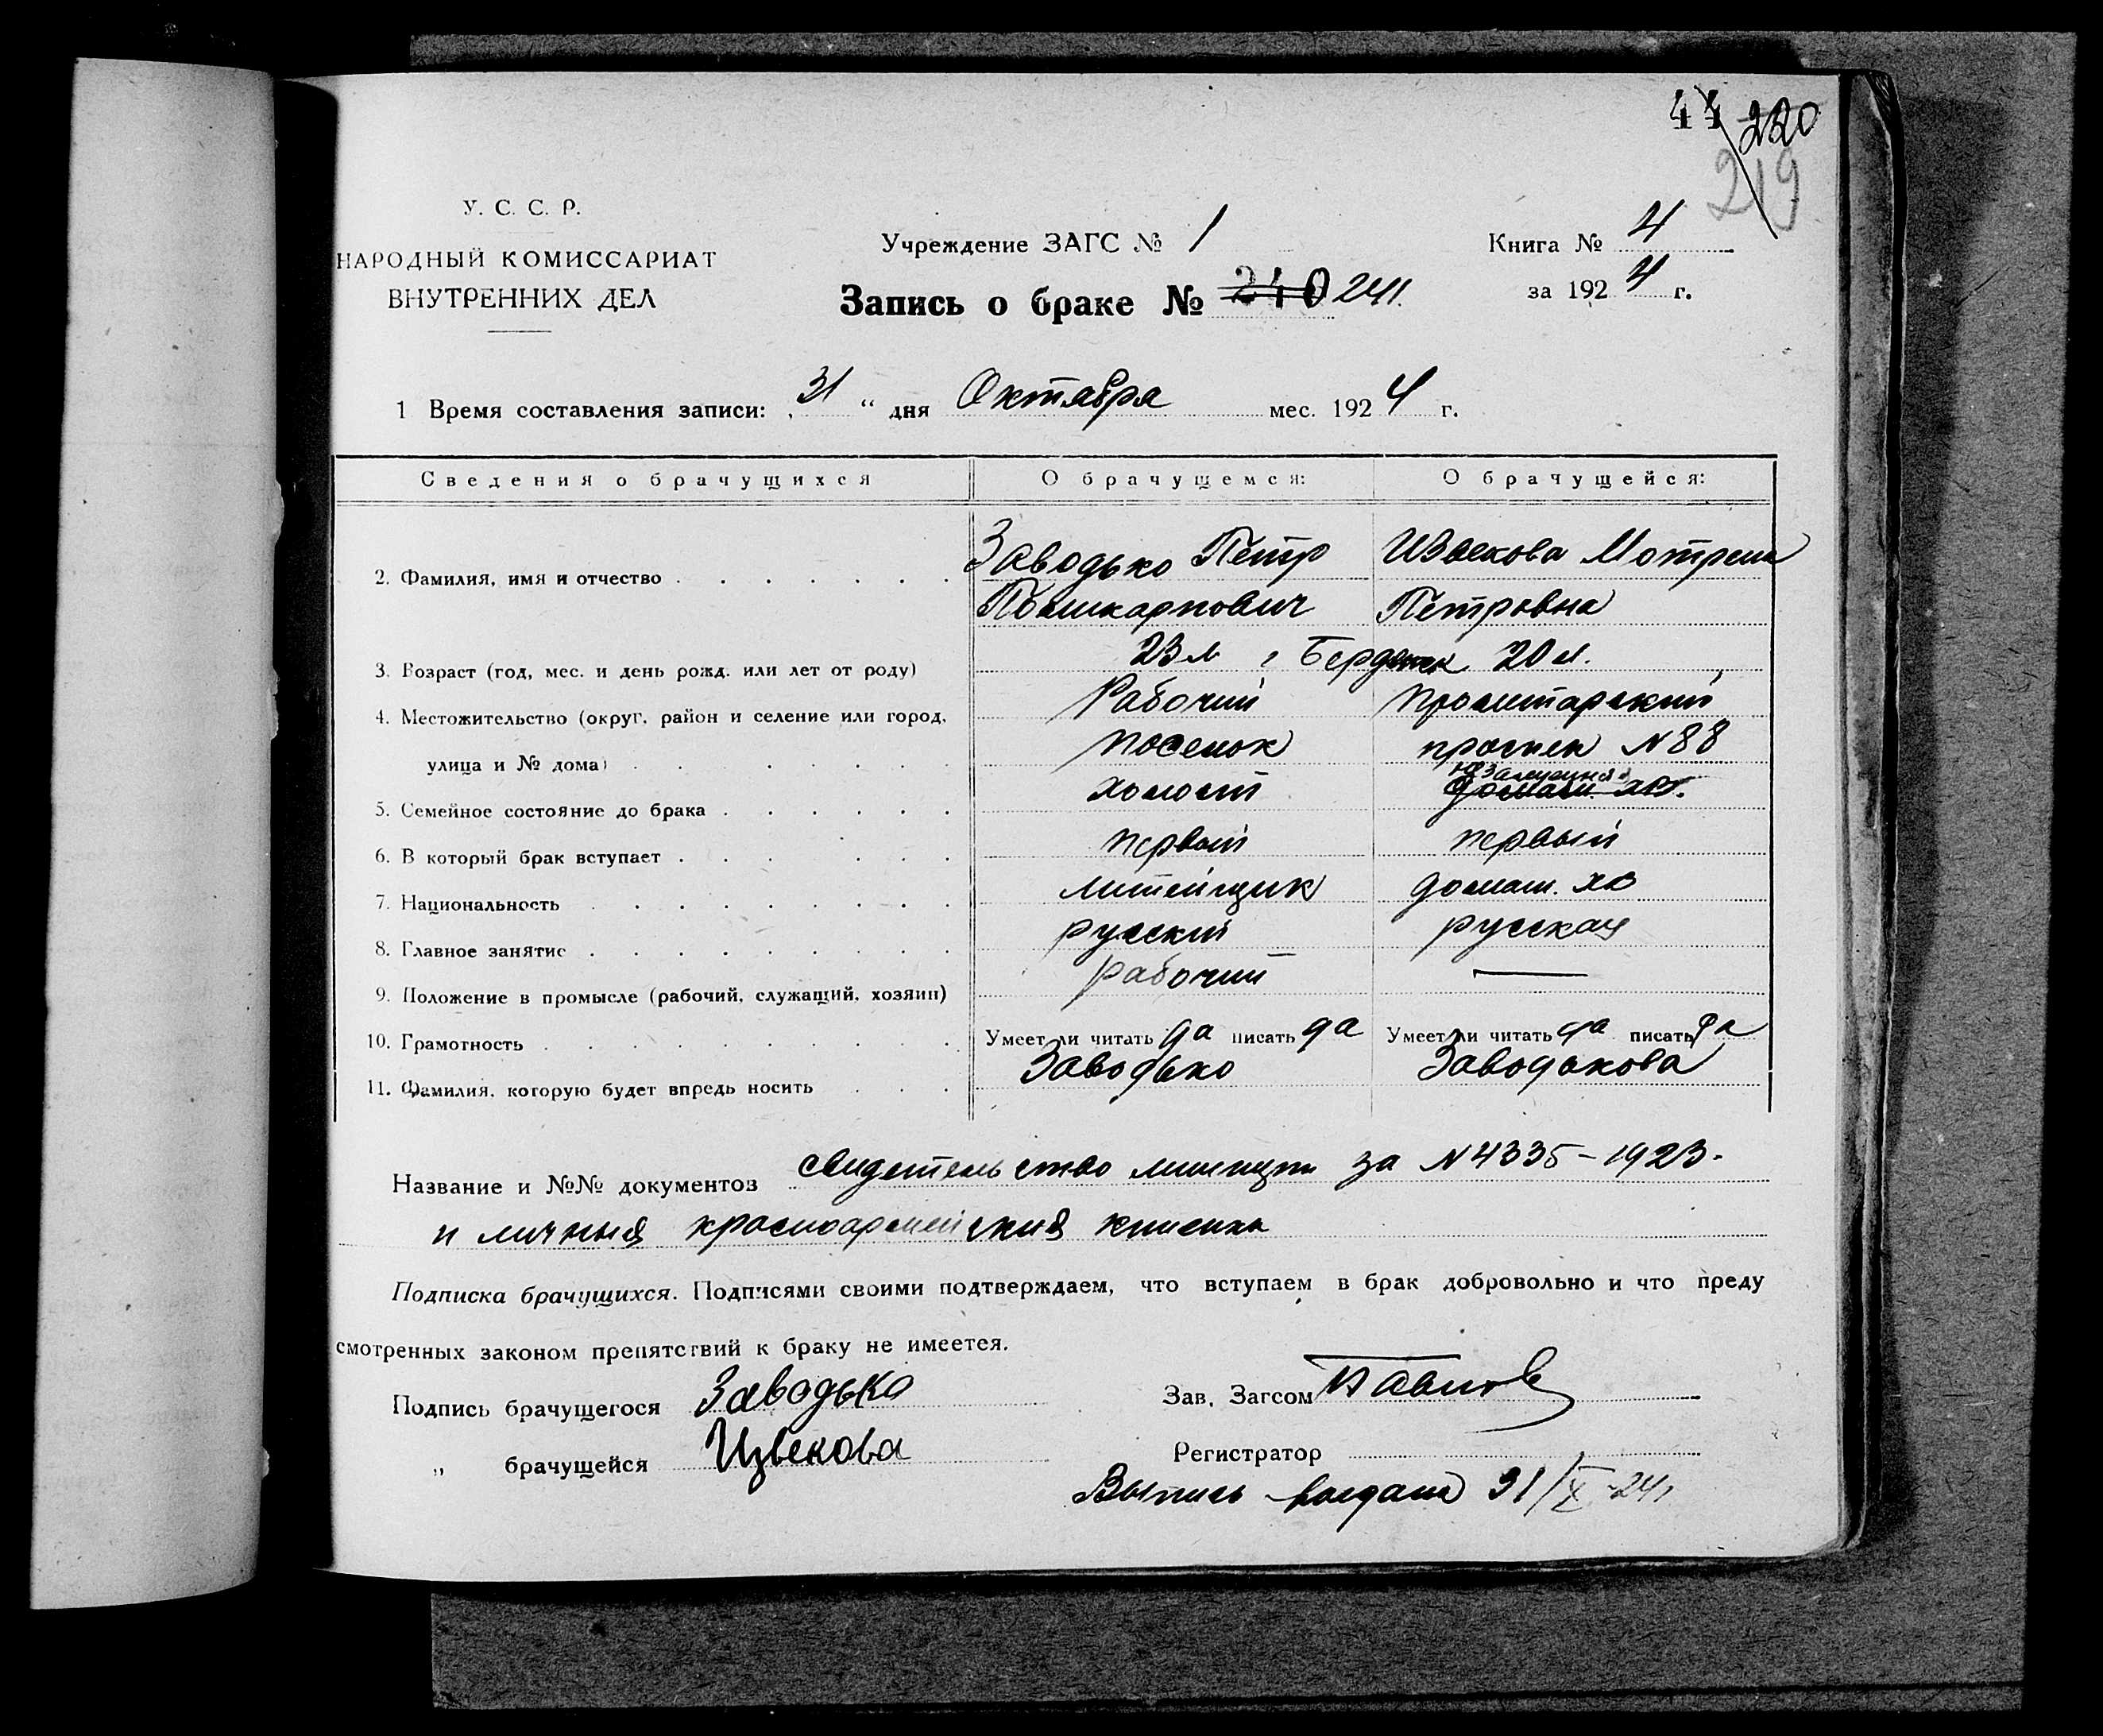 44 220
219
У. С. С. Р.
НАРОДНЫЙ КОМИССАРИАТ
ВНУТРЕННИХ ДЕЛ
Учреждение ЗАГС № 1
Книга № 4
Запись о браке № 240 241.
за 1924 г.
1 Время составления записи: 31 " дня Октября мес. 1924 г.
Сведения о брачущихся О брачущемся: О брачущейся:
2. Фамилия, имя и отчество Заводько Петр Извекова Мотрена
Поликарпович Петровна
3. Возраст (год, мес. и день рожд. или лет от роду) 23 л г Бердянск 20 л.
4. Местожительство (округ, район и селение или город, Рабочий Пролетарский
улица и № дома) поселок проспек N 88
незамужняя
5. Семейное состояние до брака холост домаш. хоз.
6. В который брак вступает первый первый
7. Национальность литейщик домаш. хо
8. Главное занятие русский русская
9. Положение в промысле (рабочий, служащий, хозяин) рабочий —
10. Грамотность Умеет ли читать да писать да Умеет ли читать да писать да
11. Фамилия, которую будет впредь носить Заводько Заводькова
Название и №№ документов свидетельство милиции за N 4335-1923.
и личныя красноармейския книжки
Подписка брачущихся. Подписями своими подтверждаем, что вступаем в брак добровольно и что преду
смотренных законом препятствий к браку не имеется.
Подпись брачущегося Заводько
Зав. Загсом Павлов
„ брачущейся Извекова
Регистратор
Выпись выдана 31/X-24г